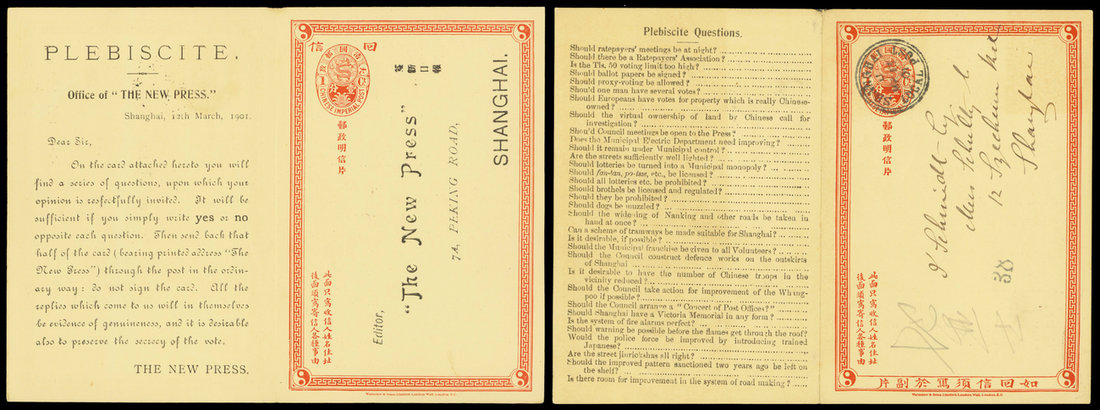 PLEBISCITE.
Office of "THE NEW PRESS."
Shanghai, 12th March, 1901.
Dear Sir,
On the card attached hereto you will
find a series of questions, upon which your
opinion is respectfully invited. It will be
sufficient if you simply write yes or no
opposite each question. Then send back that
half of the card (bearing printed address "The
New Press") through the post in the ordin-
ary way: do not sign the card. All the
replies which come to us will in themselves
be evidence of genuineness, and it is desirable
also to preserve the secrecy of the vote.
THE NEW PRESS.
回信
CHINESE IMPERIAL POST
郵政明信片
此面只寫收信人姓名住址
後面須寫寄信人各種事由
Editor,
"The New Press"
報日新英
7A, PEKING ROAD,
SHANGHAI.
Waterlow & Sons Limited, London Wall, London, E.C.
Plebiscite Questions.
Should ratepayers' meetings be at night?
Should there be a Ratepayers' Association?
Is the Tr. 50 voting limit too high?
Should ballot papers be signed?
Should proxy-voting be allowed?
Should one man have several votes?
Should Europeans have votes for property which is really Chinese-
owned?
Should the virtual ownership of land by Chinese call for
investigation?
Shou'd Council meetings be open to the Press?
Does the Municipal Electric Department need improving?
Should it remain under Municipal control?
Are the streets sufficiently well lighted?
Should lotteries be turned into a Municipal monopoly?
Should fan-tan, po-tsze, etc., be licensed?
Should all lotteries etc. be prohibited?
Should brothels be licensed and regulated?
Should they be prohibited?
Should dogs be muzzled?
Should the widening of Nanking and other roads be taken in
hand at once?
Can a scheme of tramways be made suitable for Shanghai?
Is it desirable, if possible?
Should the Municipal franchise be given to all Volunteers?
Should the Council construct defence works on the outskirts
of Shanghai
Is it desirable to have the number of Chinese troops in the
vicinity reduced?
Should the Council take action for improvement of the Whang-
poo if possible?
Should the Council arrange a "Concert of Post Offices?
Should Shanghai have a Victoria Memorial in any form?
Is the system of fire alarms perfect?
Should warning be possible before the flames get through the roof?
Would the police force be improved by introducing trained
Japanese?
Are the street jinrickshas all right?
Should the improved pattern sanctioned two years ago be left on
the shelf?
Is there room for improvement in the system of road making?
SHANGHAI LOCAL POST
郵政明信片
此面只寫收信人姓名住址
後面須寫寄信人各種事由
Schmidt
12 Szechuen
Shanghai
38
如回信須寫於副片
Waterlow & Sons Limited, London Wall, London, E.C.